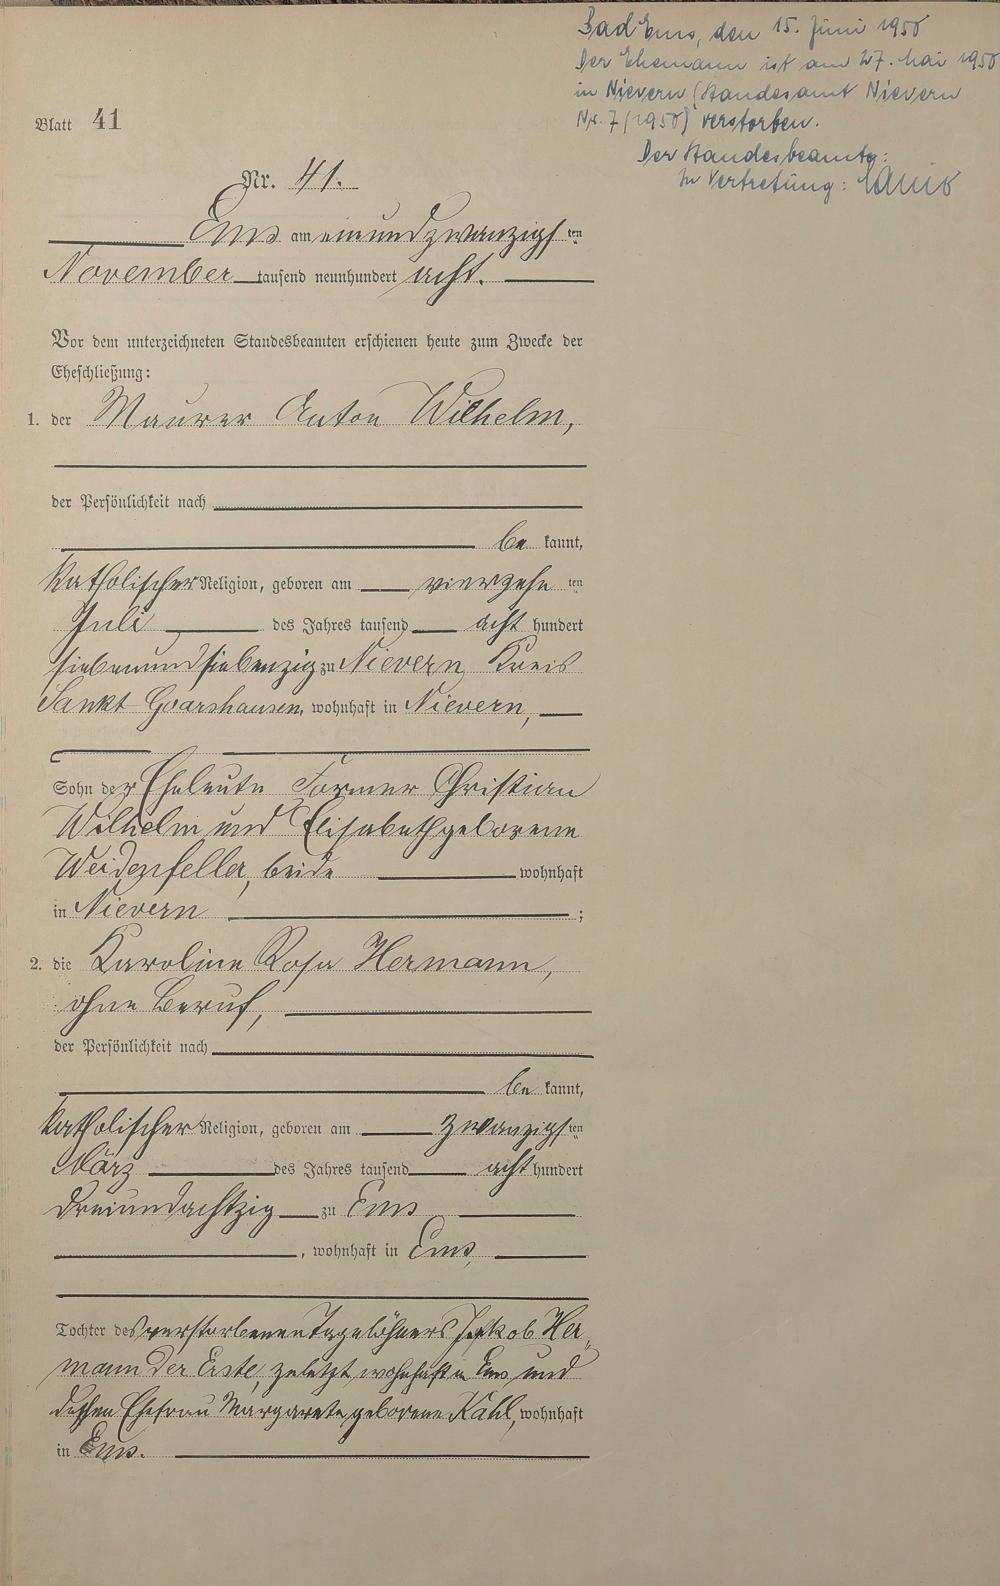 Bad Ems, den 15. Juni 1950
Der Ehemann ist am 27. Mai 1950
in Nievern (Standesamt Nievern
Nr. 7/1950) verstorben.
Der Standesbeamte:
In Vertretung:
Blatt 41
Nr. 41.
Ems am einundzwanzigsten
November tausend neunhundert acht.
Vor dem unterzeichneten Standesbeamten erschienen heute zum Zwecke der
Eheschließung:
1. der Maurer Anton Wilhelm,
der Persönlichkeit nach
be kannt,
katholischer Religion, geboren am vierzehnten
Juli des Jahres tausend acht hundert
siebenundsiebenzig zu Nievern, Kreis
Sankt Goarshausen, wohnhaft in Nievern,
Sohn der Eheleute Former Christian
Wilhelm und Elisabeth geborene
Weidenfeller, beide wohnhaft
in Nievern ;
2. die Karoline Rosa Hermann,
ohne Beruf,
der Persönlichkeit nach
be kannt,
katholischer Religion, geboren am zwanzigsten
März des Jahres tausend acht hundert
dreiundachtzig zu Ems
, wohnhaft in Ems,
Tochter des verstorbenen Tagelöhners Jakob Her„
mann der Erste, zuletzt wohnhaft in Ems, und
dessen Ehefrau Margarete geborene Kahl, wohnhaft
in Ems.